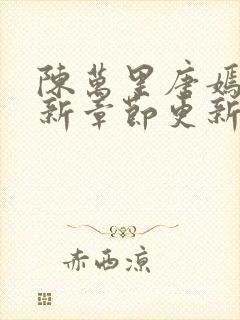 陳萬里唐嫣
新章節更新
赤西凉